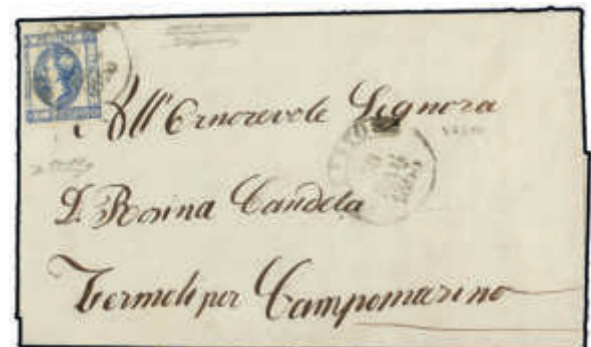 All'Onorevole Signora
D. Rosina Candela
Termoli per Campomarino